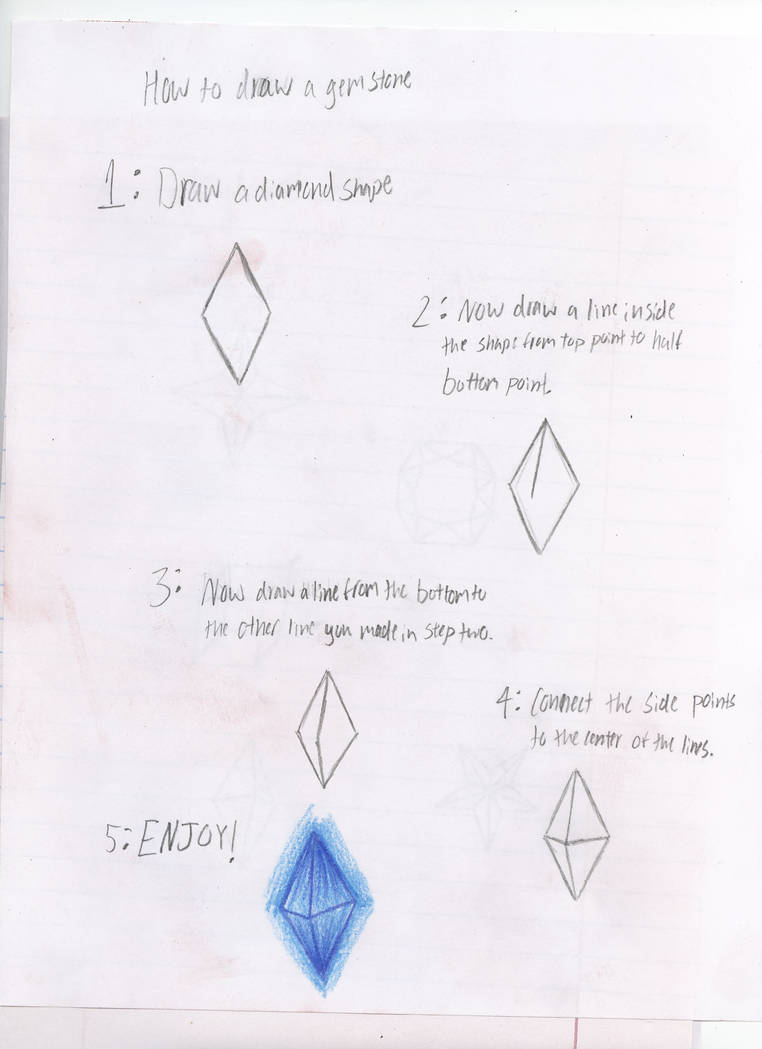 How to draw a gemstone
1: Draw a diamond shape
2: Now draw a line inside
the shape from top point to half
bottom point.
3: Now draw a line from the bottom to
the other line you made in step two.
4: Connect the side points
to the center of the lines.
5: ENJOY!